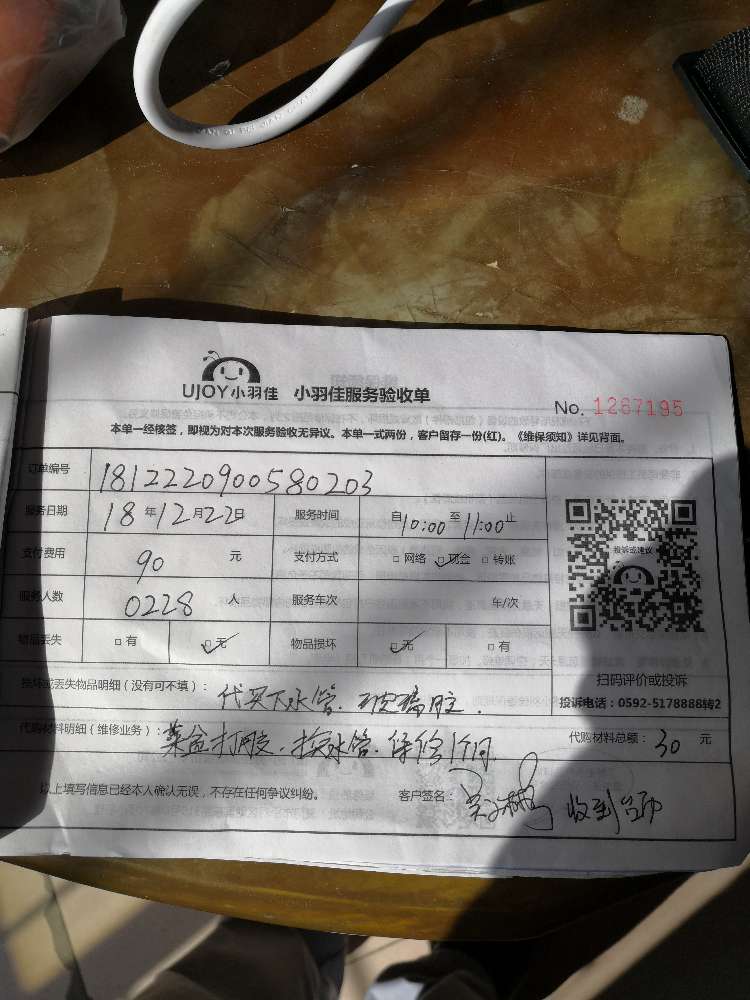 UJOY小羽佳 小羽佳服务验收单
No. 1267195
本单一经核签，即视为对本次服务验收无异议。本单一式两份，客户留存一份(红)。《维保须知》详见背面。
订单编号 1812220900580203
服务日期 18年12月22日 服务时间 自10:00至11:00止
支付费用 90 元 支付方式 □网络 ☑现金 □转账
投诉或建议
服务人数 0228 人 服务车次 车/次
物品丢失 □有 ☑无 物品损坏 ☑无 □有
扫码评价或投诉
损坏或丢失物品明细（没有可不填）： 代买下水管. 玻璃胶.
投诉电话：0592-5178888转2
代购材料明细（维修业务）： 菜盆打胶. 换水管. 保修1个月
代购材料总额：30 元
以上填写信息已经本人确认无误，不存在任何争议纠纷。 客户签名： 收到